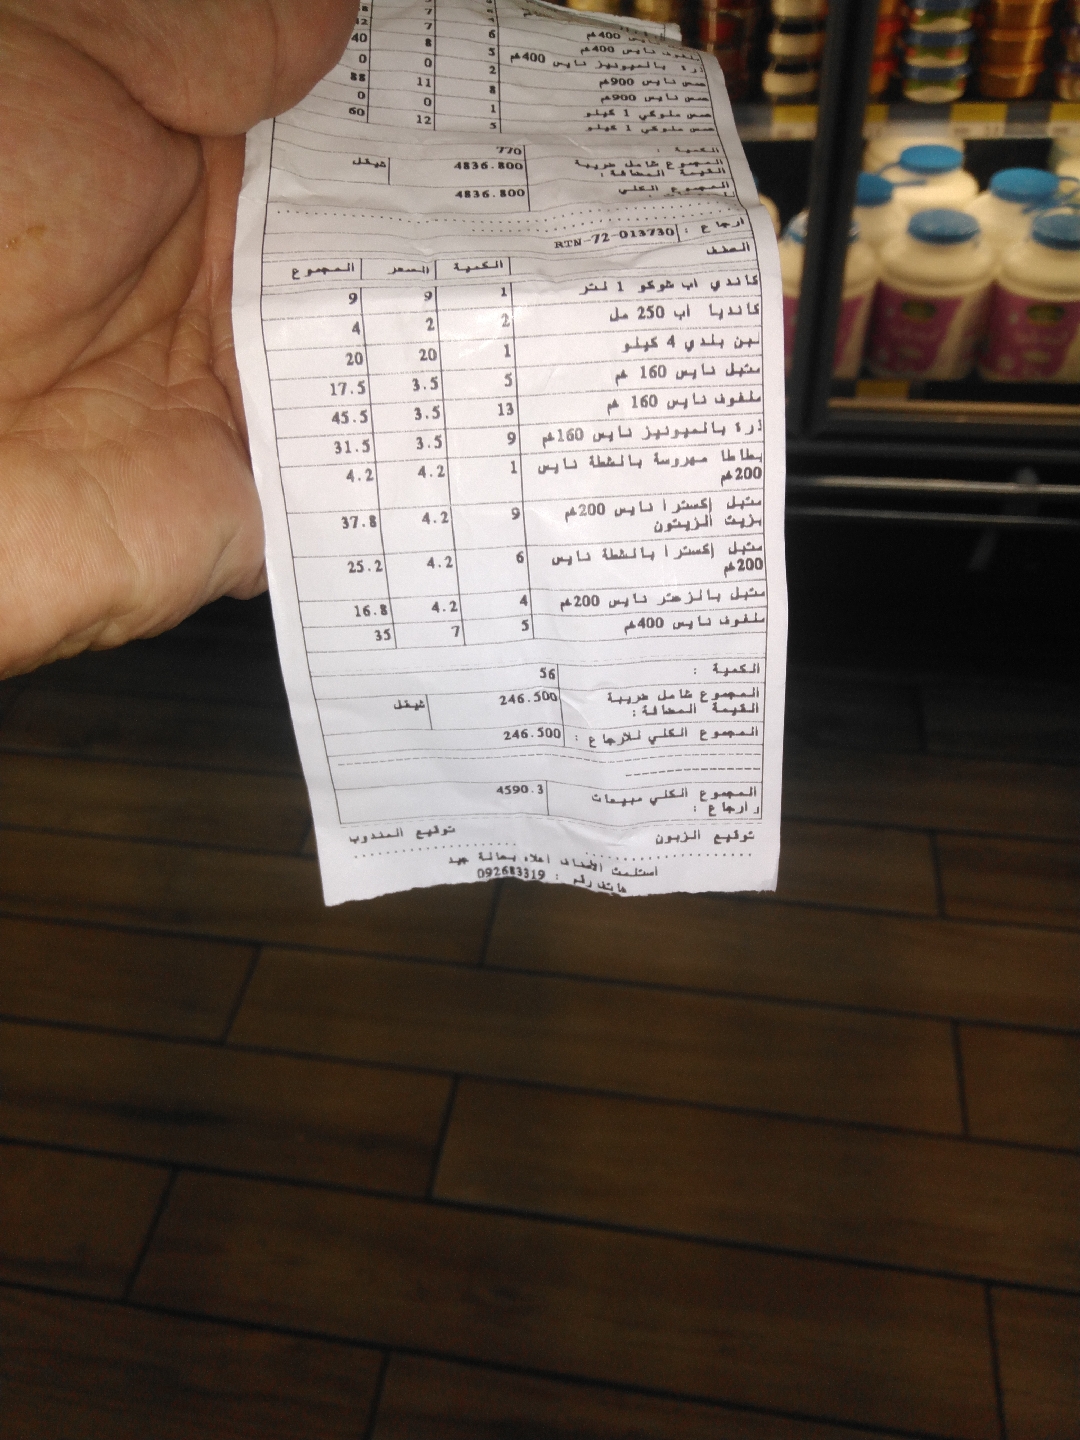 نايس 400غم 6 7
ملفوف نايس 400غم 5 8 40
ذرة بالميونيز نايس 400غم 2 0 0
حمص نايس 900غم 8 11 88
حمص نايس 900غم 1 0 0
حمص ملوكي 1 كيلو 5 12 60
حمص ملوكي 1 كيلو
الكمية : 770
المجموع شامل ضريبة 4836.800 شيقل
القيمة المضافة :
المجموع الكلي 4836.800
ارجاع : RTN-72-013730
الصنف
الكمية السعر المجموع
كاندي اب شوكو 1 لتر 1 9 9
كانديا اب 250 مل 2 2 4
لبن بلدي 4 كيلو 1 20 20
متبل نايس 160 غم 5 3.5 17.5
ملفوف نايس 160 غم 13 3.5 45.5
ذرة بالميونيز نايس 160غم 9 3.5 31.5
بطاطا مهروسة بالشطة نايس 1 4.2 4.2
200غم
متبل إكسترا نايس 200غم 9 4.2 37.8
بزيت الزيتون
متبل إكسترا بالشطة نايس 6 4.2 25.2
200غم
متبل بالزعتر نايس 200غم 4 4.2 16.8
ملفوف نايس 400غم 5 7 35
الكمية : 56
المجموع شامل ضريبة 246.500 شيقل
القيمة المضافة :
المجموع الكلي للارجاع : 246.500
المجموع الكلي مبيعات 4590.3
و ارجاع :
توقيع الزبون توقيع المندوب
أستلمت الأصناف أعلاه بحالة جيد
هاتف رقم : 092683319